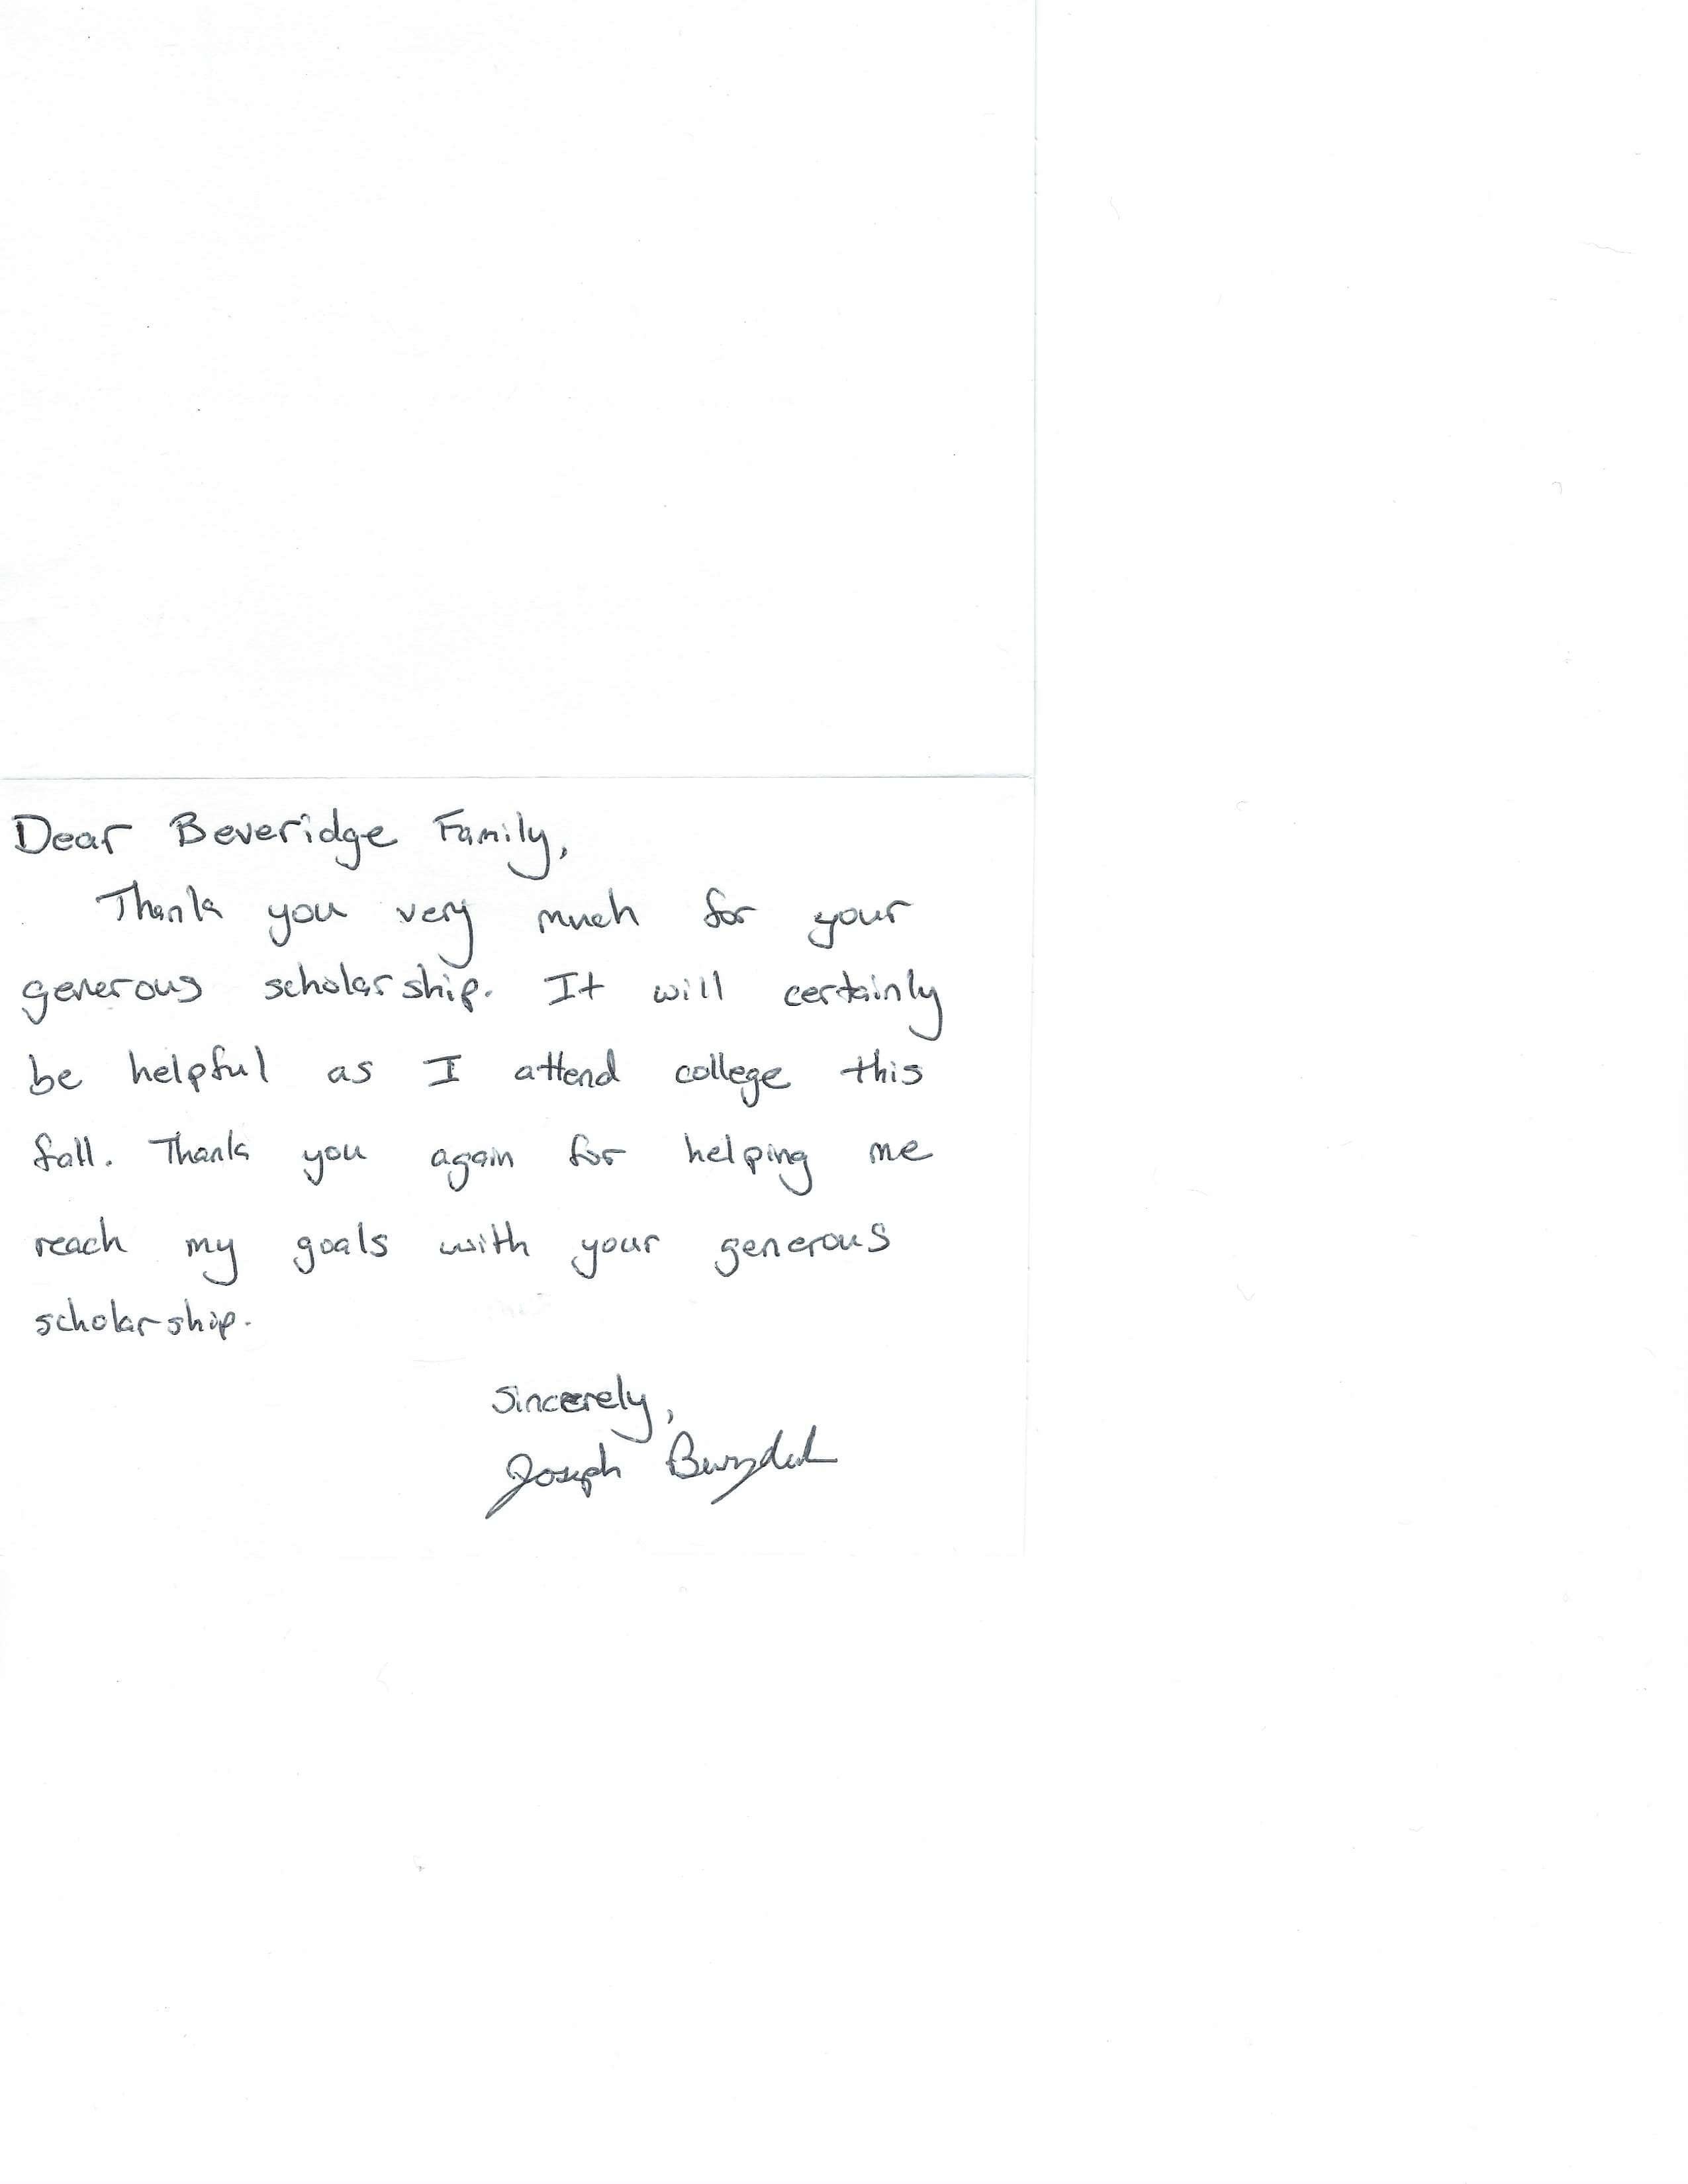 Dear Beveridge Family,
Thank you very much for your
generous scholarship. It will certainly
be helpful as I attend college this
fall. Thank you again for helping me
reach my goals with your generous
scholarship.
Sincerely,
Joseph